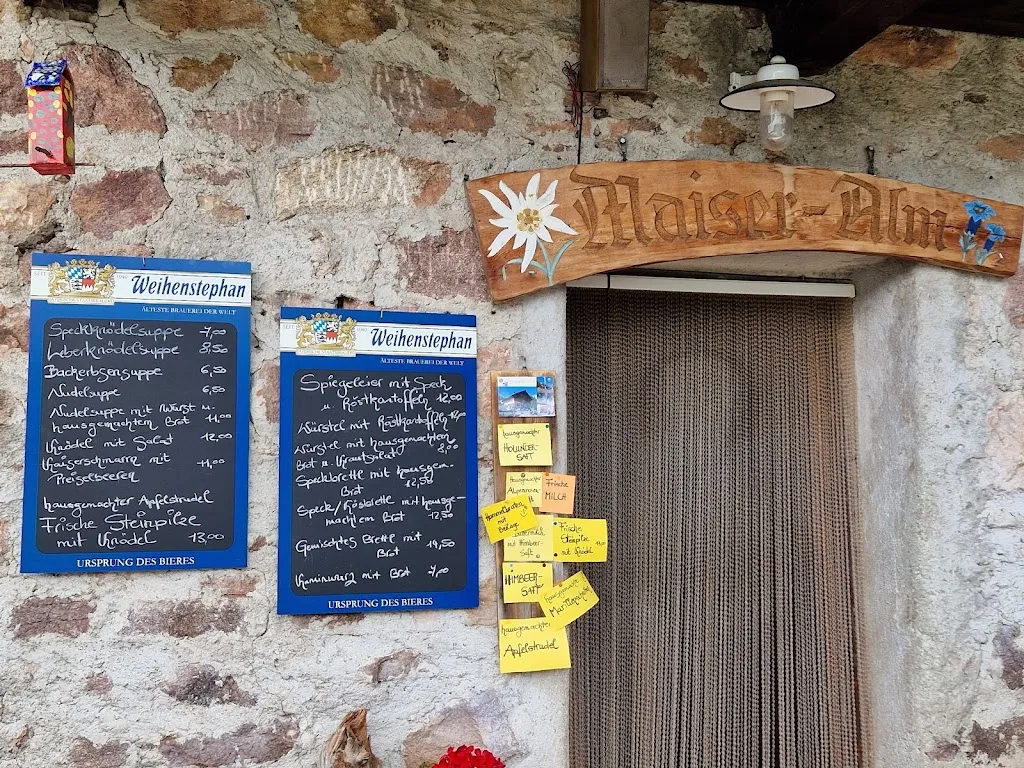 Maiser-Alm
Weihenstephan
ÄLTESTE BRAUEREI DER WELT
Speckknödelsuppe 7,00
Leberknödelsuppe 8,50
Backerbsensuppe 6,50
Nudelsuppe 6,50
Nudelsuppe mit Wurst u.
hausgemachten Brot 11,00
Knödel mit Salat 12,00
Kaiserschmarrn mit
Preiselbeeren 14,00
hausgemachter Apfelstrudel
Frische Steinpilze
mit Knödel 13,00
URSPRUNG DES BIERES
Weihenstephan
ÄLTESTE BRAUEREI DER WELT
Spiegeleier mit Speck
u. Röstkartoffeln 12,00
Würstel mit Röstkartoffeln 12,00
Würstel mit hausgemachten
Brot u. Krautsalat 8,00
Speckbrettl mit hausgem.
Brot 12,50
Speck/Käsbrettl mit hausge-
machtem Brot 12,50
Gemischtes Brettl mit
Brot 14,50
Kaminwurz mit Brot 7,00
URSPRUNG DES BIERES
hausgemachter
HOLUNDER-
SAFT
hausgemachter
Frische
MILCH
mit
Frische
Steinpilze
mit Knödel
mit Himbeer-
Saft
HIMBEER-
SAFT
hausgemachter
Apfelstrudel